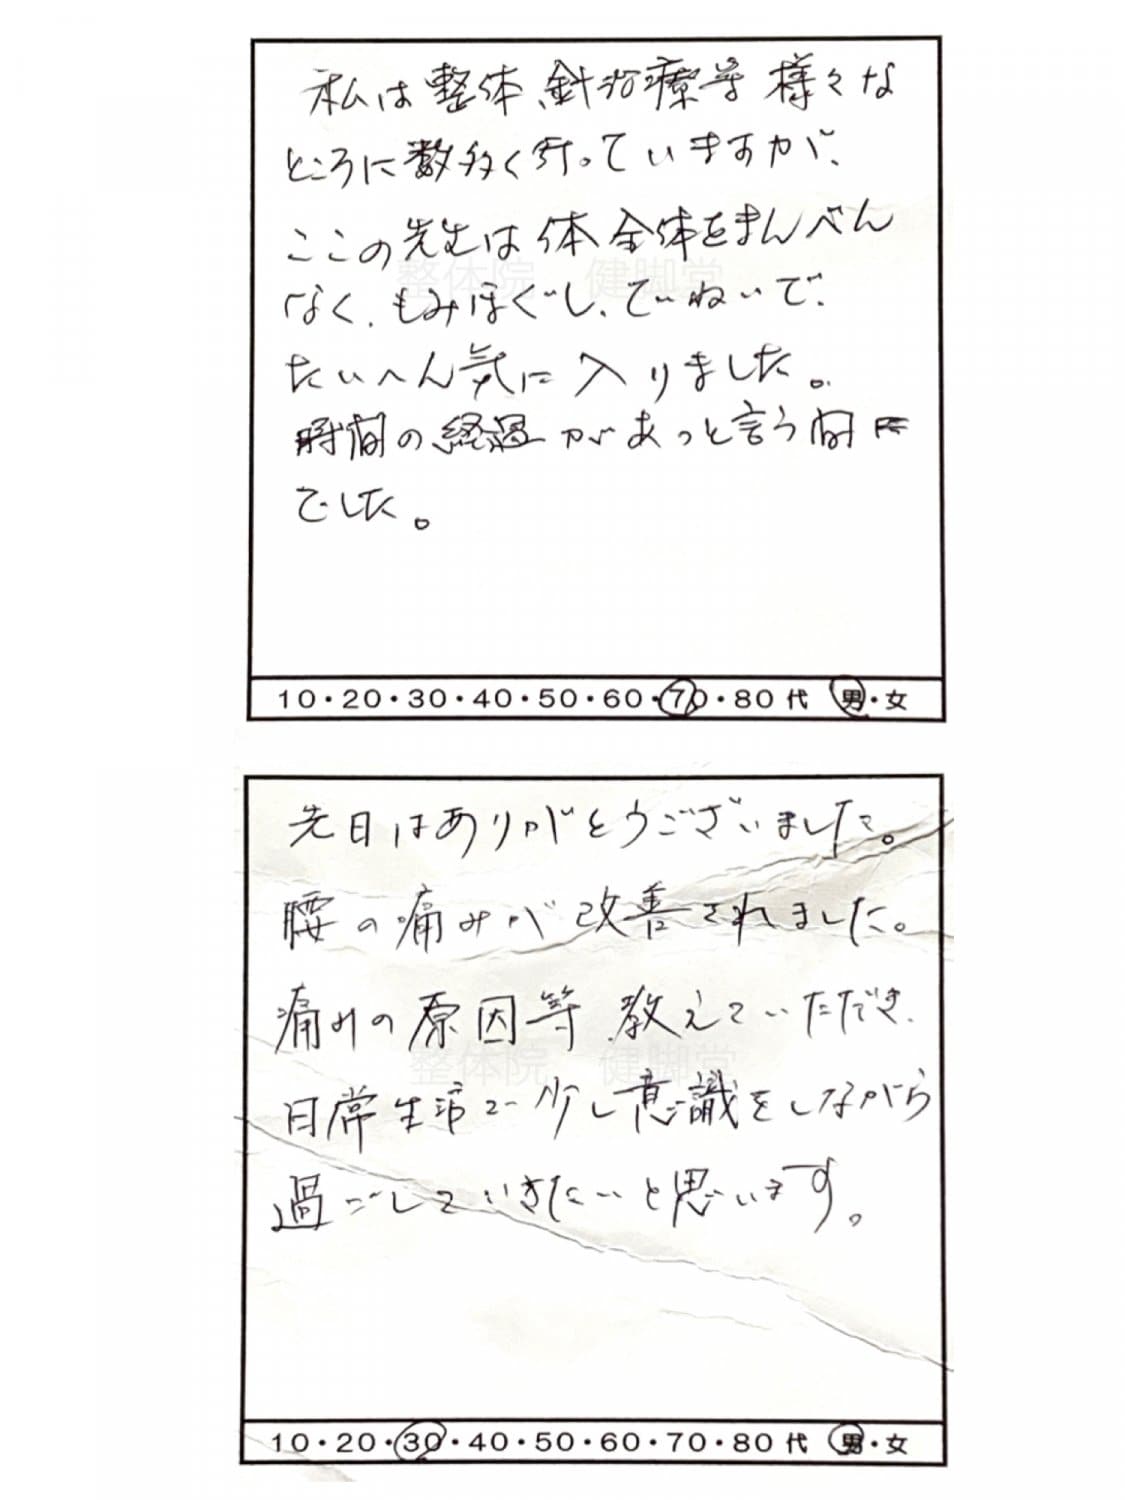 私は整体、針治療等様々な
ところに数多く行っていますが、
ここの先生は体全体をまんべん
なく、もみほぐし、ていねいで、
たいへん気に入りました。
時間の経過があっと言う間
でした。
整体院 健脚堂
10・20・30・40・50・60・70・80 代 男・女
先日はありがとうございました。
腰の痛みが改善されました。
痛みの原因等、教えていただき、
日常生活で少し意識をしながら
過ごしていきたいと思います。
整体院 健脚堂
10・20・30・40・50・60・70・80 代 男・女